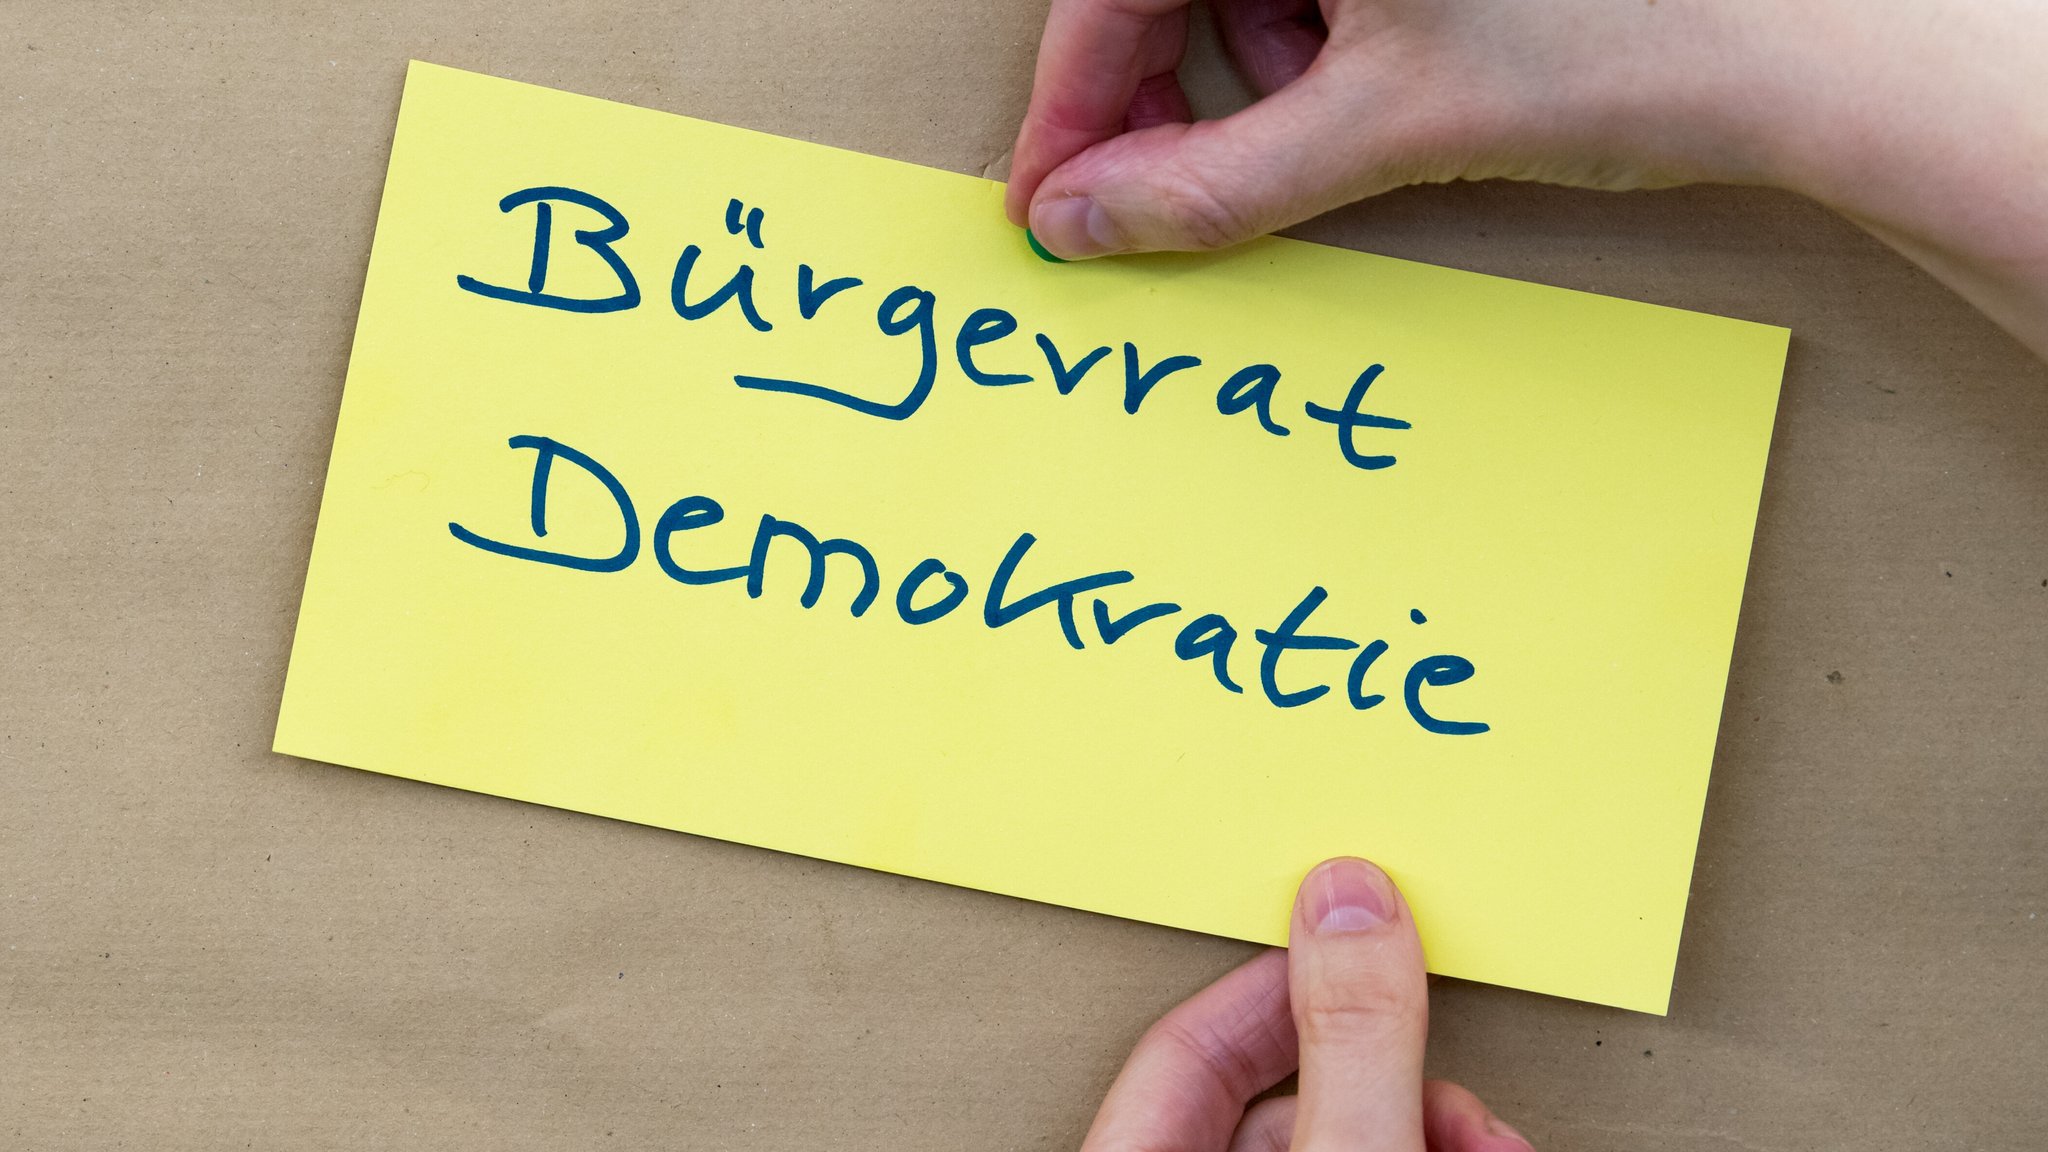 Bürgerrat
Demokratie